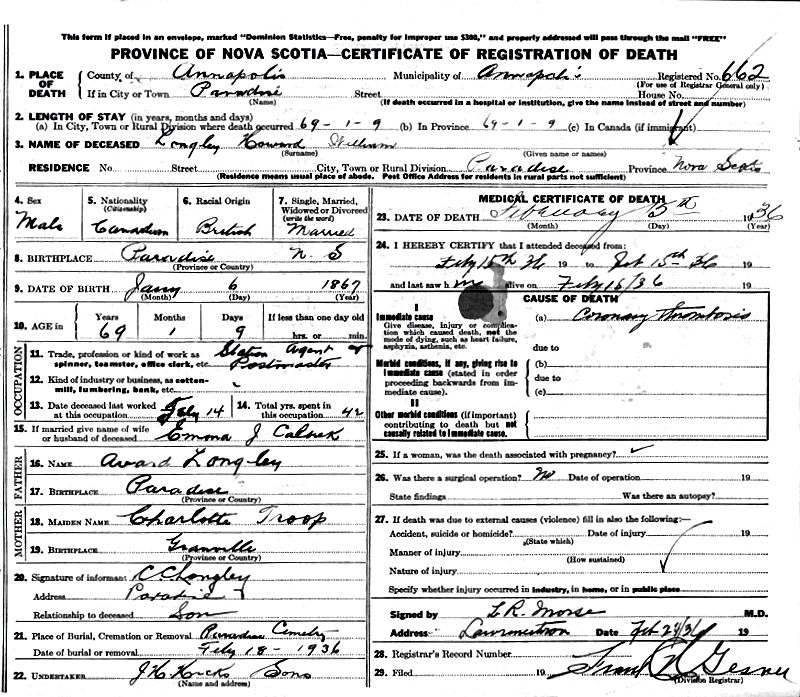 This form if placed in an envelope, marked "Dominion Statistics—Free, penalty for improper use $300," and properly addressed will pass through the mail "FREE"
PROVINCE OF NOVA SCOTIA—CERTIFICATE OF REGISTRATION OF DEATH
1. PLACE OF DEATH County of Annapolis Municipality of Annapolis Registered No. 662
(For use of Registrar General only)
If in City or Town Paradise Street House No.
(Name) (If death occurred in a hospital or institution, give the name instead of street and number)
2. LENGTH OF STAY (in years, months and days)
(a) In City, Town or Rural Division where death occurred 69-1-9 (b) In Province 69-1-9 (c) In Canada (if immigrant)
3. NAME OF DECEASED Longley Howard William
(Surname) (Given name or names)
RESIDENCE No. Street City, Town or Rural Division Paradise Province Nova Scotia
(Residence means usual place of abode. Post Office Address for residents in rural parts not sufficient)
4. Sex Male
5. Nationality (Citizenship) Canadian
6. Racial Origin British
7. Single, Married, Widowed or Divorced (write the word) Married
8. BIRTHPLACE Paradise N. S
(Province or Country)
9. DATE OF BIRTH Jany 6 1867
(Month) (Day) (Year)
10. AGE in Years Months Days If less than one day old
69 1 9 hrs. or min.
OCCUPATION
11. Trade, profession or kind of work as spinner, teamster, office clerk, etc. Station Agent Postmaster
12. Kind of industry or business, as cotton-mill, lumbering, bank, etc.
13. Date deceased last worked at this occupation Feby 14
14. Total yrs. spent in this occupation 42
15. If married give name of wife or husband of deceased J
FATHER
16. NAME Avard Longley
17. BIRTHPLACE Paradise
(Province or Country)
MOTHER
18. MAIDEN NAME Charlotte Troop
19. BIRTHPLACE Granville
(Province or Country)
20. Signature of informant C C Longley
Address Paradise
Relationship to deceased Son
21. Place of Burial, Cremation or Removal Paradise Cemetry
Date of burial or removal Feby 18 - 1936
22. UNDERTAKER Sons
(Name and address)
MEDICAL CERTIFICATE OF DEATH
23. DATE OF DEATH February 15th 1936
(Month) (Day) (Year)
24. I HEREBY CERTIFY that I attended deceased from:
Feby 15th 36 19 to Feb 15th 36 19
and last saw him alive on Feby 15/36 19
CAUSE OF DEATH
I
Immediate cause
Give disease, injury or complication which caused death, not the mode of dying, such as heart failure, asphyxia, asthenia, etc.
(a) Coronary Thrombosis
due to
Morbid conditions, if any, giving rise to immediate cause (stated in order proceeding backwards from immediate cause).
(b)
due to
(c)
II
Other morbid conditions (if important) contributing to death but not causally related to immediate cause.
25. If a woman, was the death associated with pregnancy?
26. Was there a surgical operation? No Date of operation 19
State findings Was there an autopsy?
27. If death was due to external causes (violence) fill in also the following:—
Accident, suicide or homicide? Date of injury 19
(State which)
Manner of injury
(How sustained)
Nature of injury
Specify whether injury occurred in industry, in home, or in public place
Signed by L. R. Morse M.D.
Address Lawrencetown Date Feb 29/36 19
28. Registrar's Record Number
29. Filed 19 Frank Gesner
(Division Registrar)